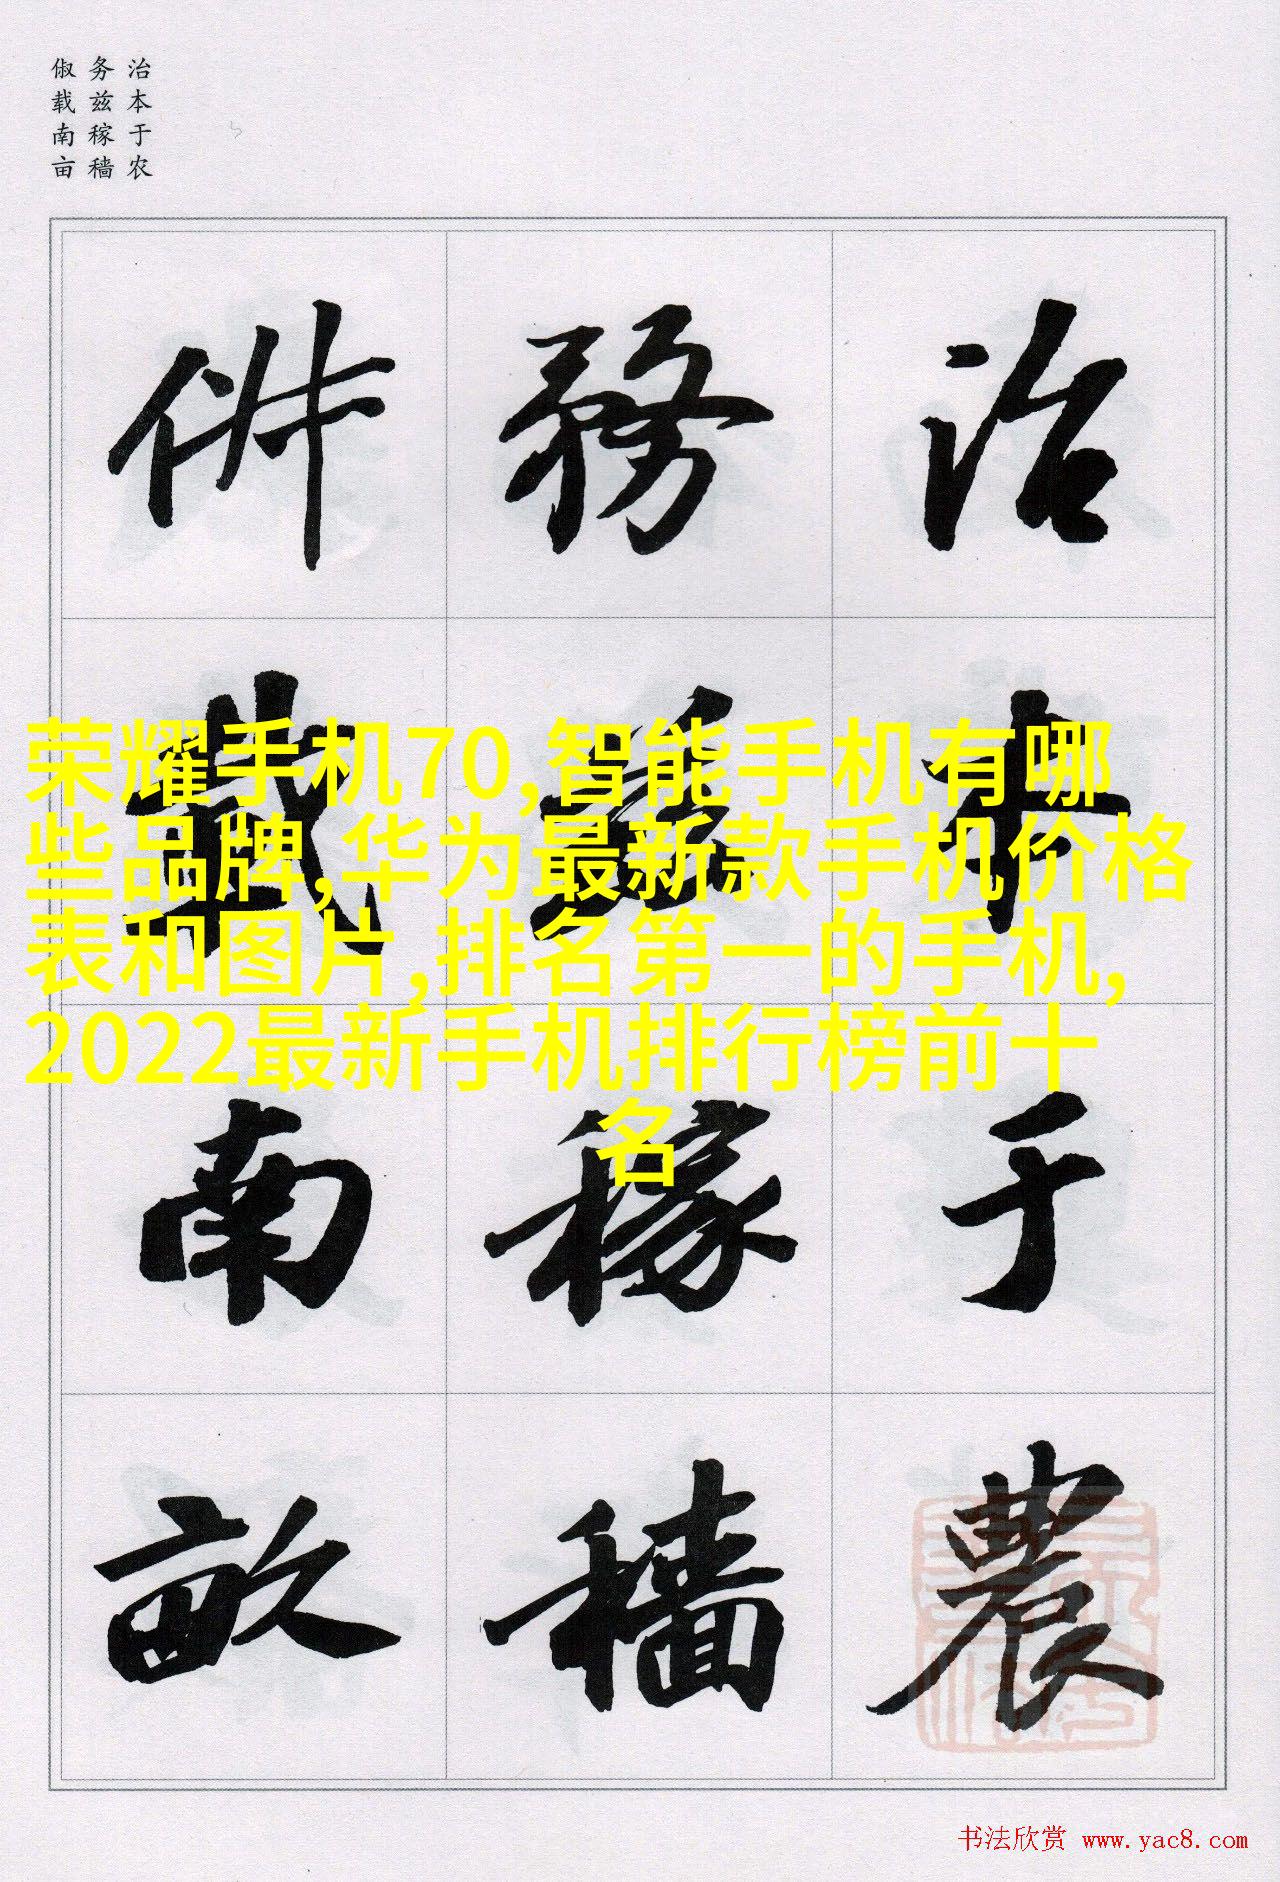 治本于农
务兹稼穑
俶载南亩
治本于農
務兹稼穡
俶載南畝
荣耀手机70,智能手机有哪
些品牌,华为最新款手机价格
表和图片,排名第一的手机,
2022最新手机排行榜前十
名
书法欣赏 www.yac8.com